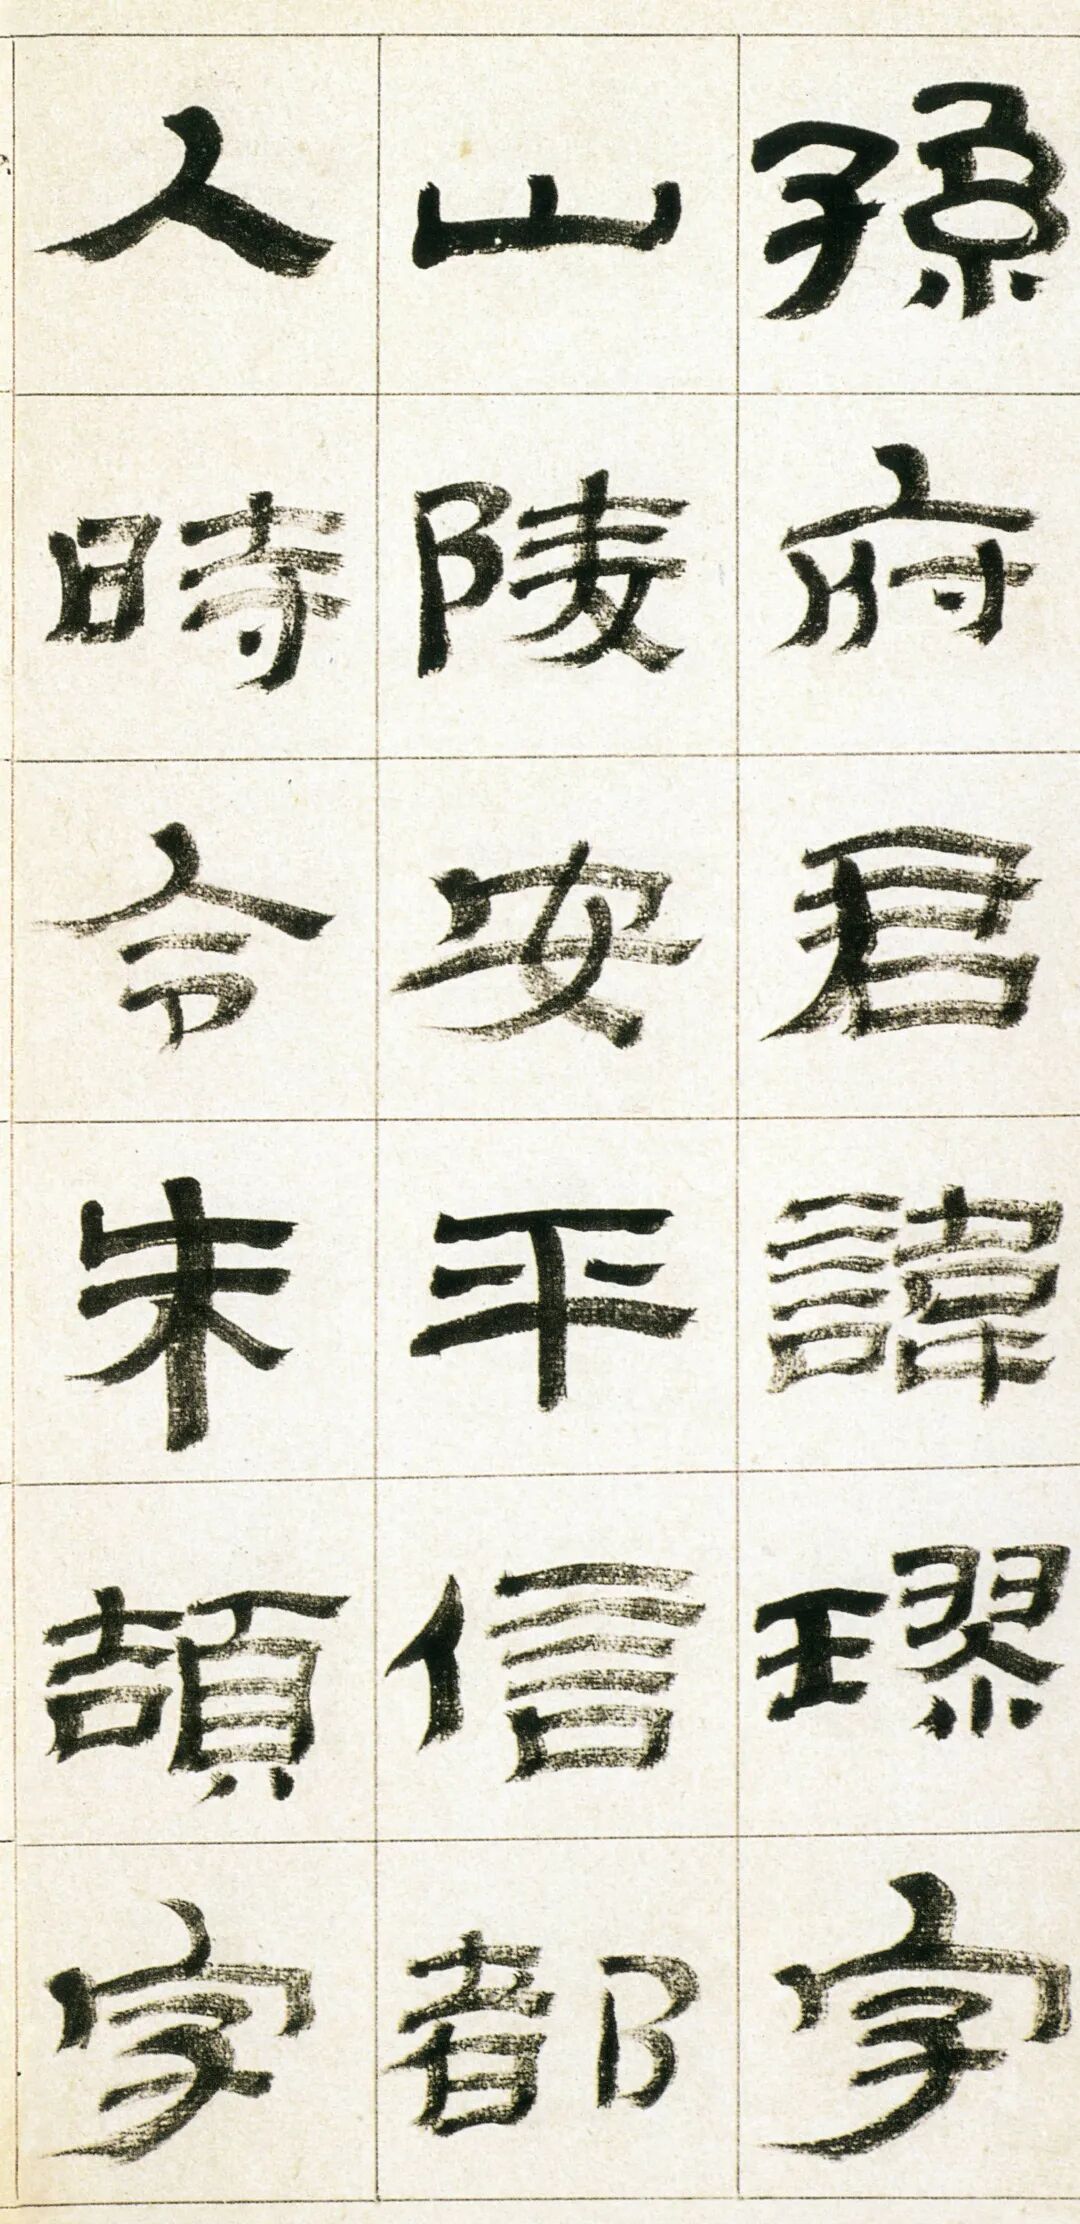 孫府君諱璆字
山陵安平信都
人時令朱頡字